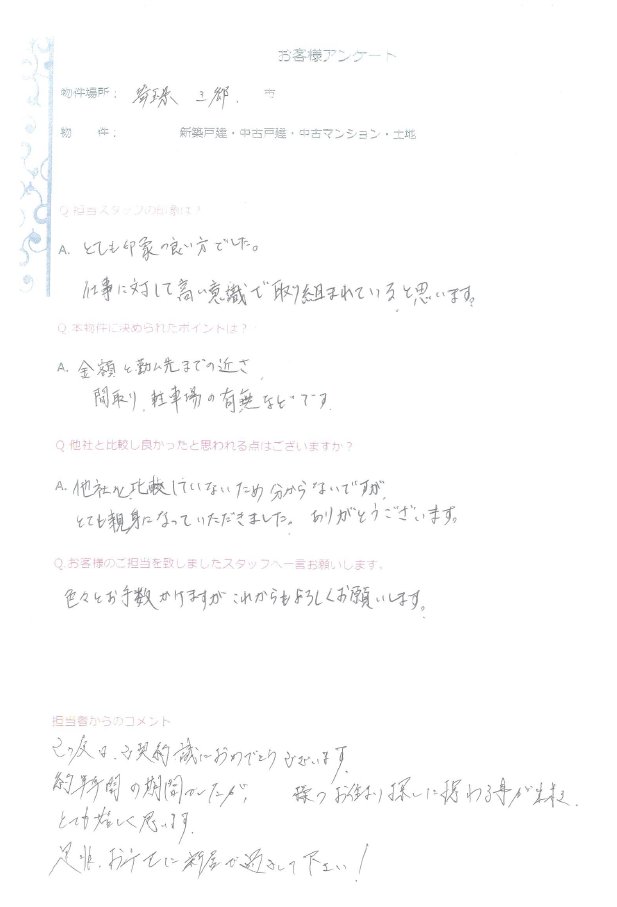 お客様アンケート
物件場所: 埼玉県 三郷 市
物 件: 新築戸建・中古戸建・中古マンション・土地
Q 担当スタッフの印象は?
A. とても印象の良い方でした。
仕事に対して高い意識で取り組まれていると思います。
Q 本物件に決められたポイントは?
A. 金額と勤ム先までの近さ
間取り、駐車場の有無などです
Q 他社と比較し良かったと思われる点はございますか?
A. 他社と比較していないため分からないですが、
とても親身になっていただきました。ありがとうございます。
Q.お客様のご担当を致しましたスタッフへ一言お願いします。
色々とお手数かけますがこれからもよろしくお願いします。
担当者からのコメント
この度は、ご契約誠におめでとうございます
約半年間の期間でしたが、 様のお住まい探しに携わる事が出来、
とても嬉しく思います。
是非、お幸せに新居で過ごして下さい!